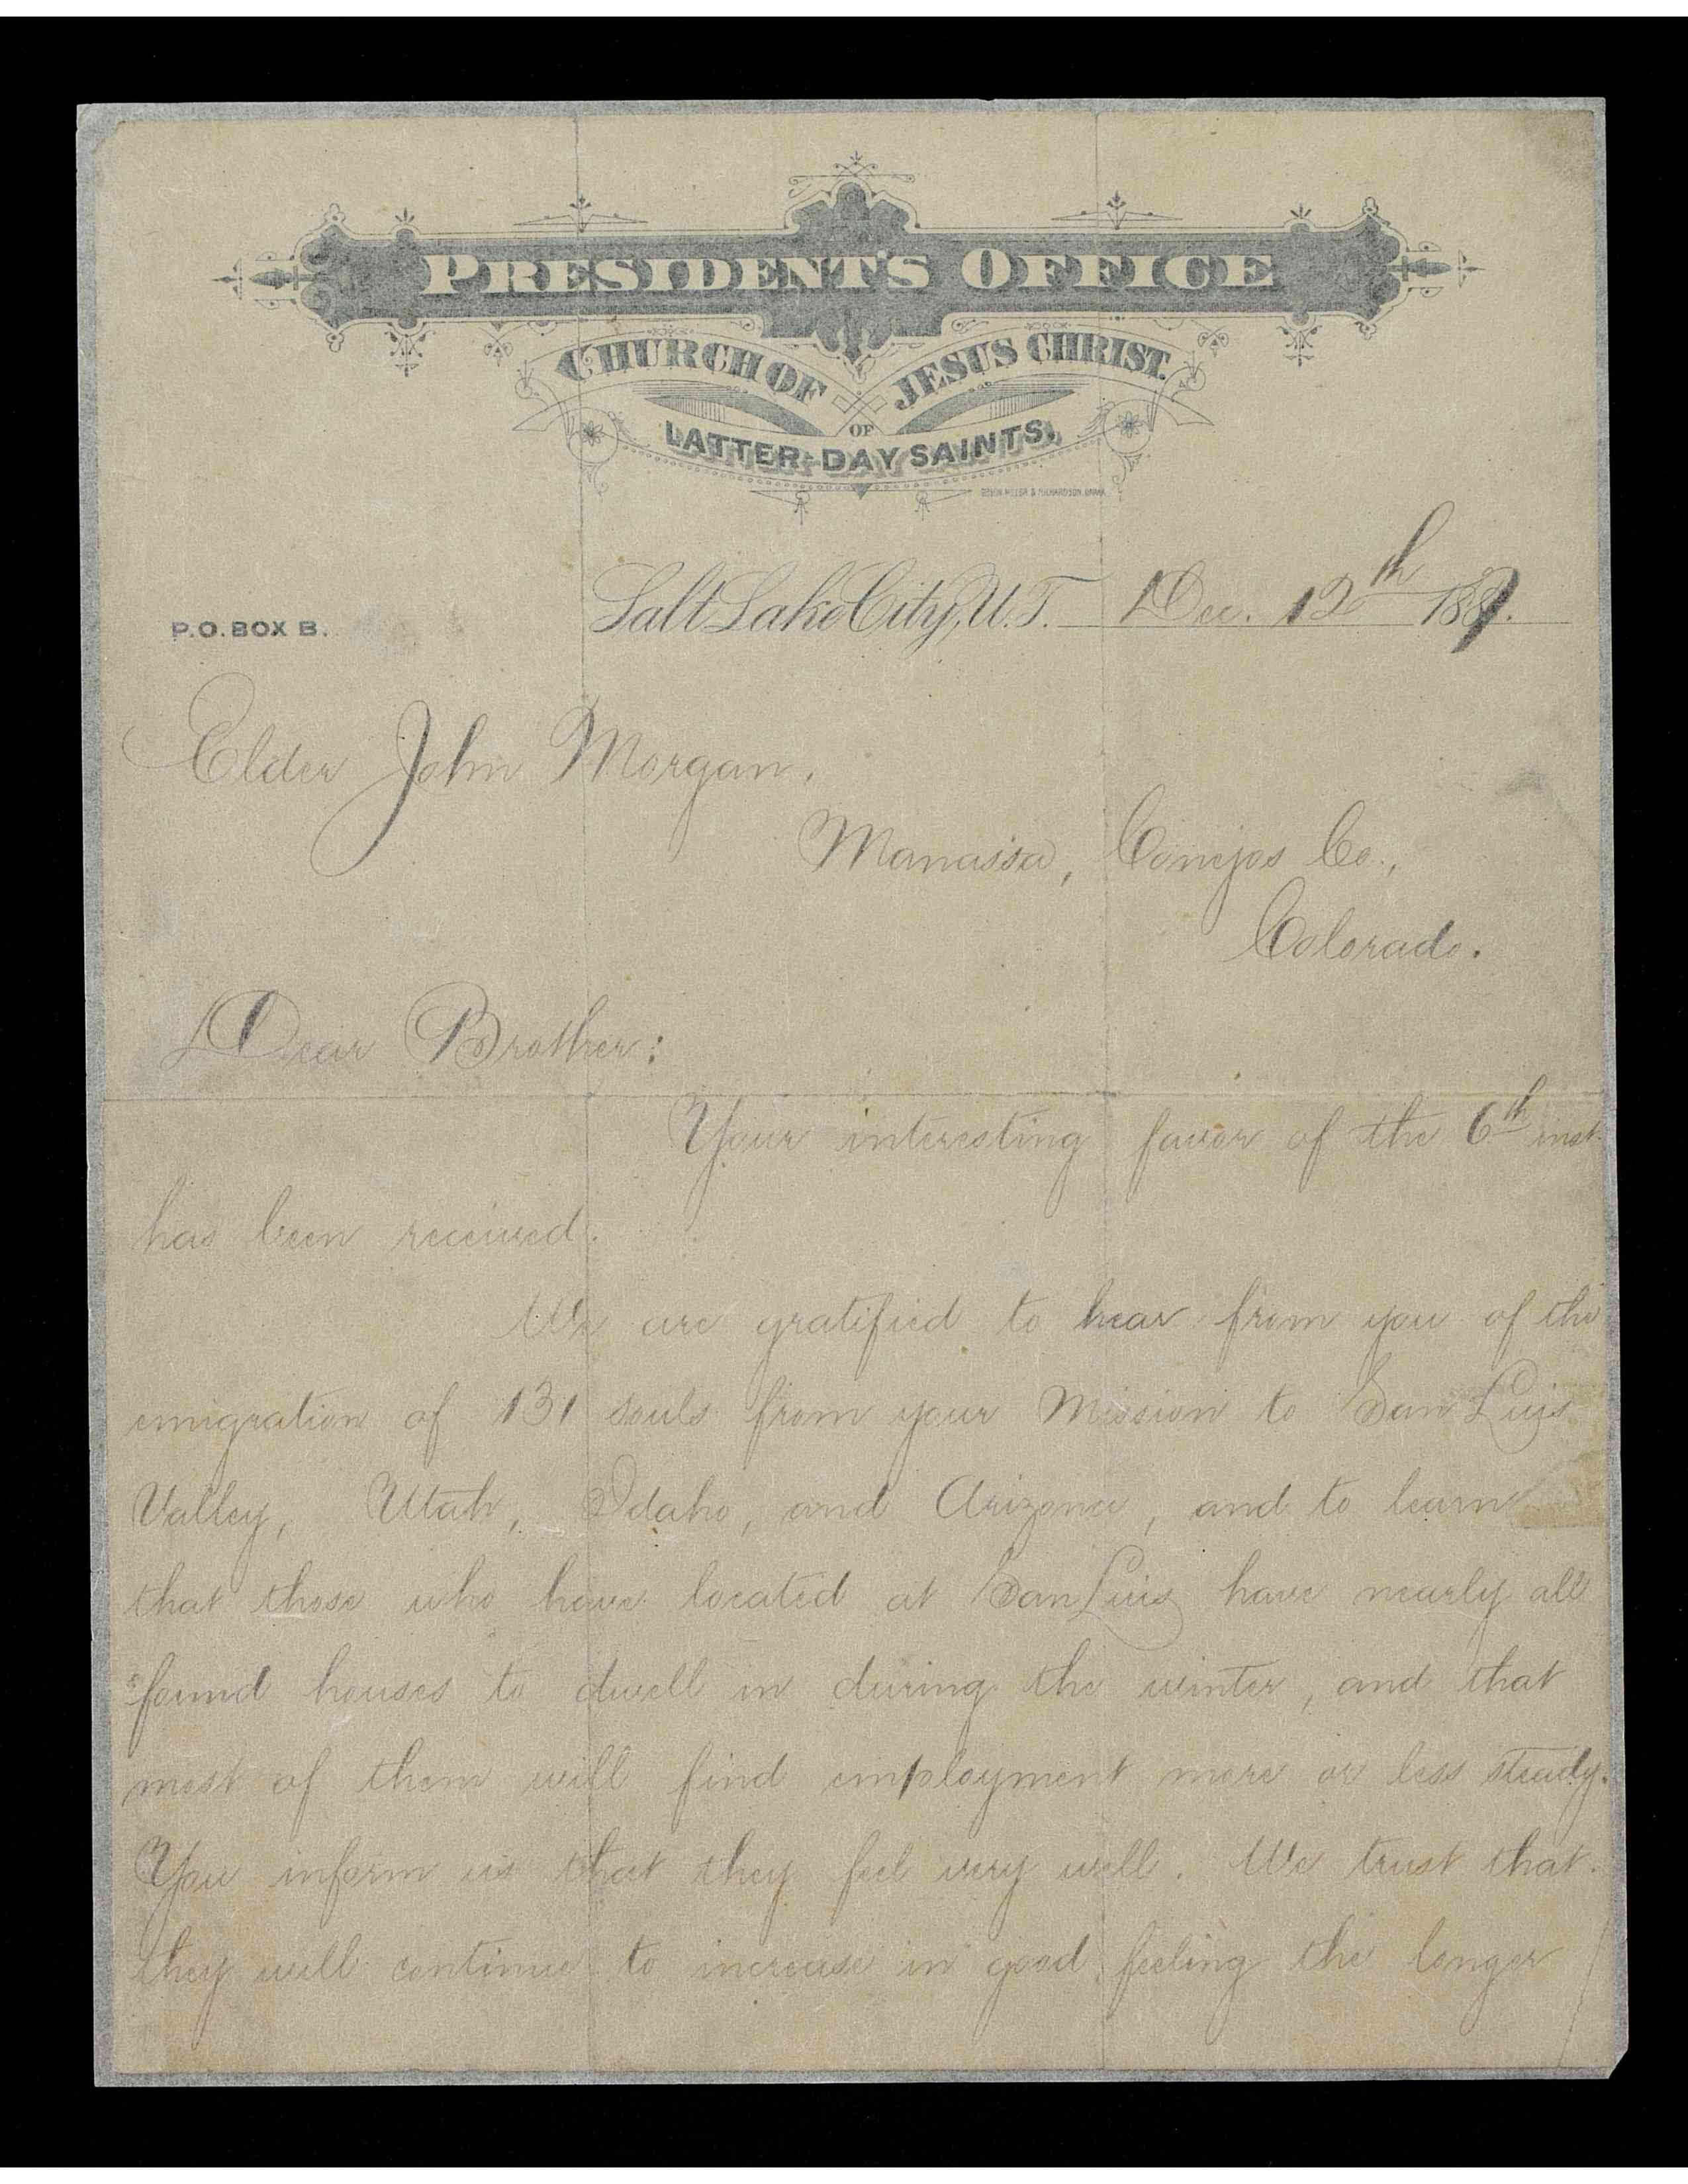 PRESIDENT'S OFFICE
CHURCH OF JESUS CHRIST.
OF
LATTER-DAY SAINTS,
P.O. BOX B.
Salt Lake City, U.T. Dec. 12th 1887.
Elder John Morgan,
Manassa, Conejos Co.,
Colorado.
Dear Brother:
Your interesting favor of the 6th inst
has been received.
We are gratified to hear from you of the
emigration of 131 souls from your Mission to San Luis
Valley, Utah, Idaho, and Arizona, and to learn
that those who have located at San Luis have nearly all
found houses to dwell in during the winter, and that
most of them will find employment more or less steady.
You inform us that they feel very well. We trust that
they will continue to increase in good feeling the longer